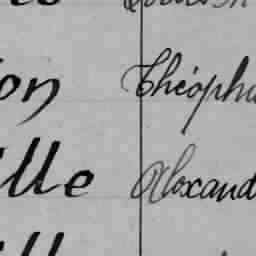 on Théoph
ille Alexand
ill